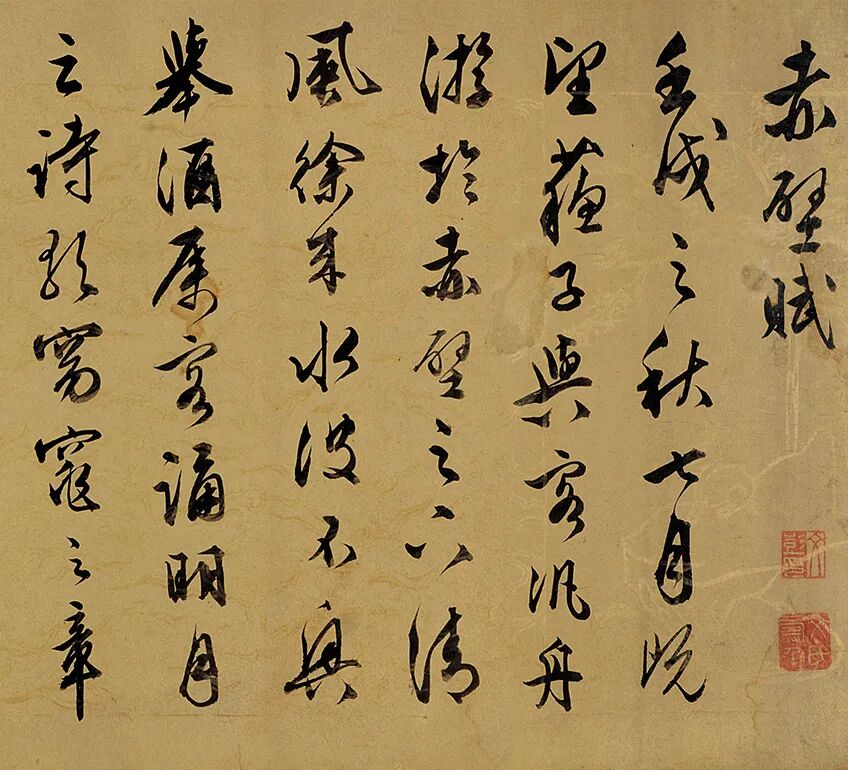 赤壁賦
壬戌之秋七月既
望蘓子與客汎舟
游於赤壁之下清
風徐来水波不興
舉酒属客誦明月
之詩歌窈窕之章